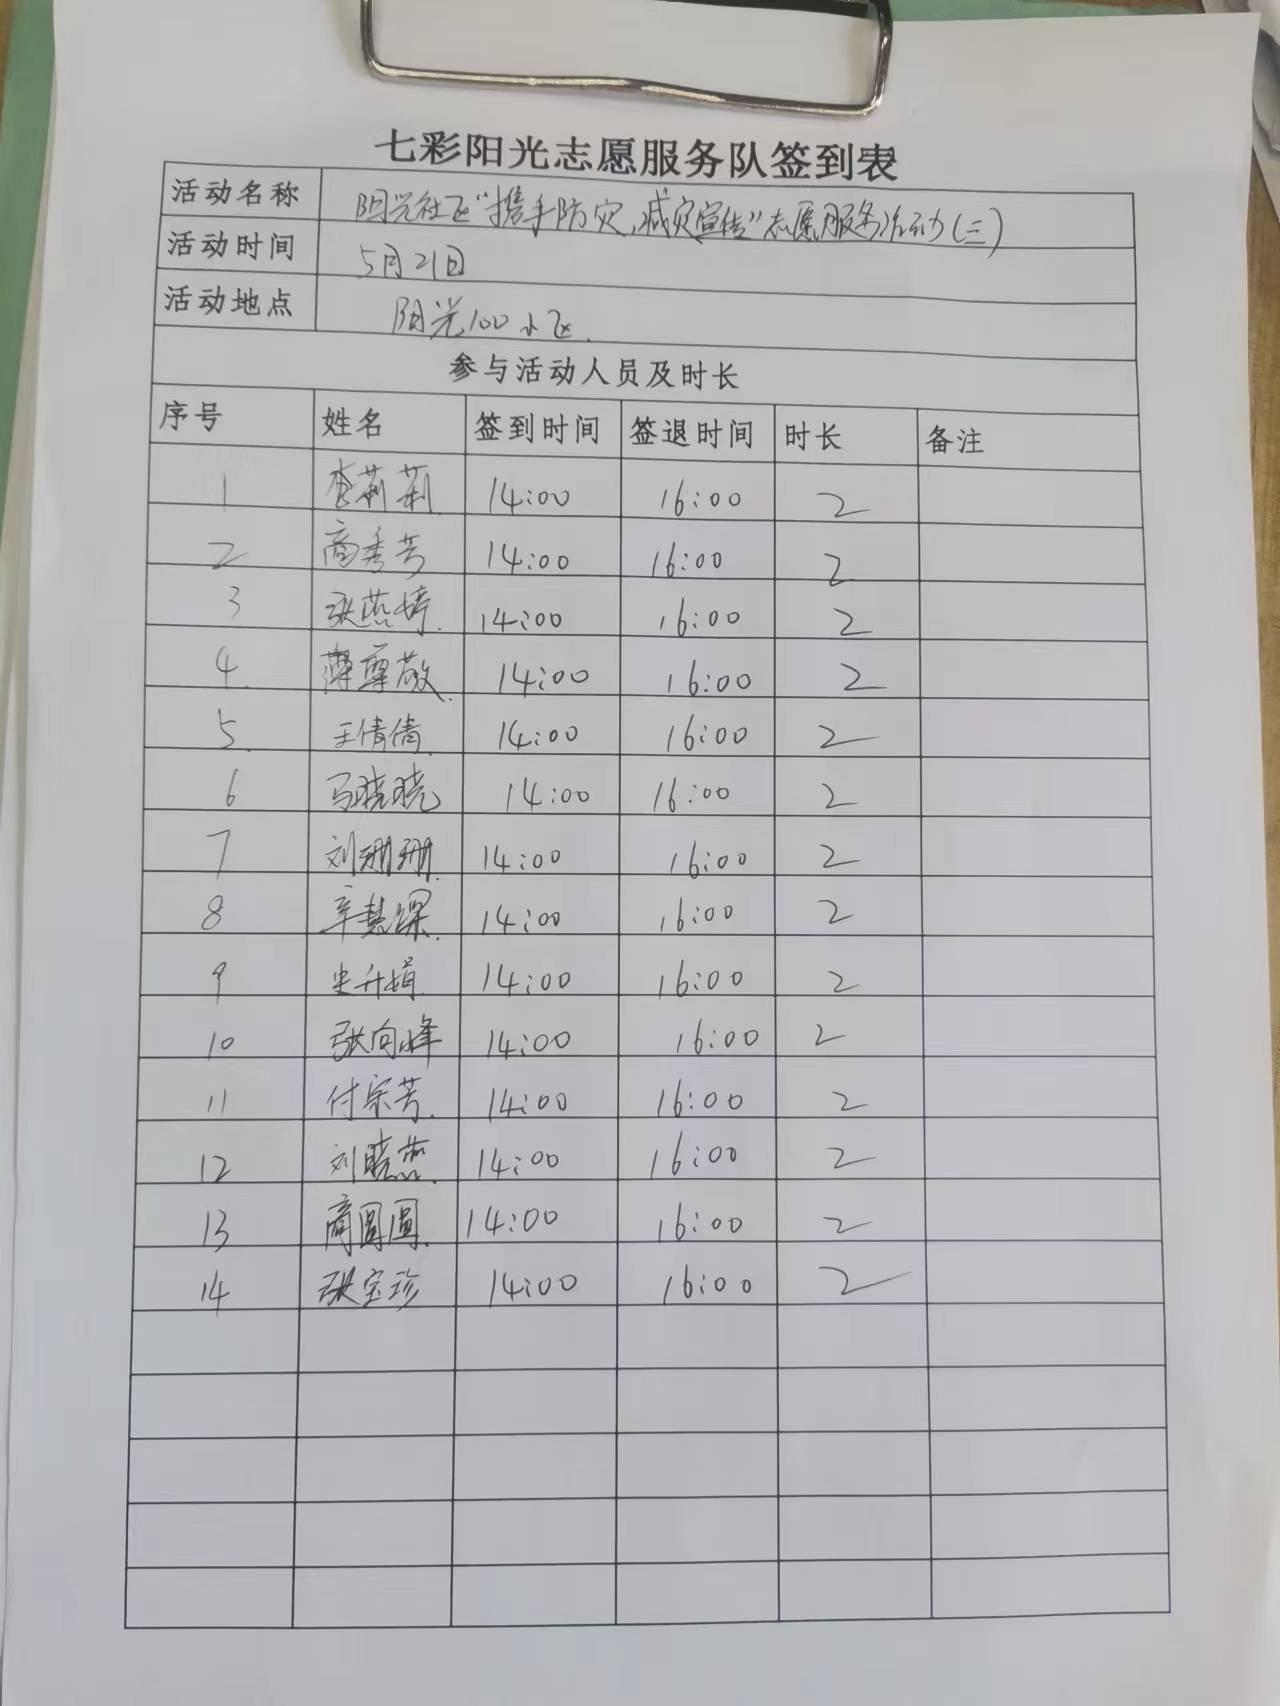 七彩阳光志愿服务队签到表
活动名称 阳光社区“携手防灾,减灾宣传”志愿服务活动(三)
活动时间 5月21日
活动地点 阳光100小区.
参与活动人员及时长
序号 姓名 签到时间 签退时间 时长 备注
1 李莉莉 14:00 16:00 2
2 高秀芳 14:00 16:00 2
3 张燕婷. 14:00 16:00 2
4. 薄尊敬. 14:00 16:00 2
5. 王倩倩. 14:00 16:00 2
6 马晓晓 14:00 16:00 2
7 刘珊珊. 14:00 16:00 2
8 辛慧 14:00 16:00 2
9 史升娟. 14:00 16:00 2
10 张向峰 14:00 16:00 2
11 付宗芳. 14:00 16:00 2
12 刘晓燕. 14:00 16:00 2
13 商圆圆. 14:00 16:00 2
14 张宝珍 14:00 16:00 2